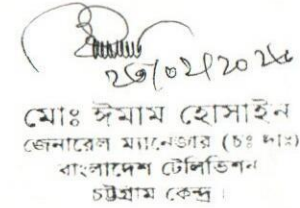 মোঃ ঈমাম হোসাইন
জেনারেল ম্যানেজার (চঃ দাঃ)
বাংলাদেশ টেলিভিশন
চট্টগ্রাম কেন্দ্র।